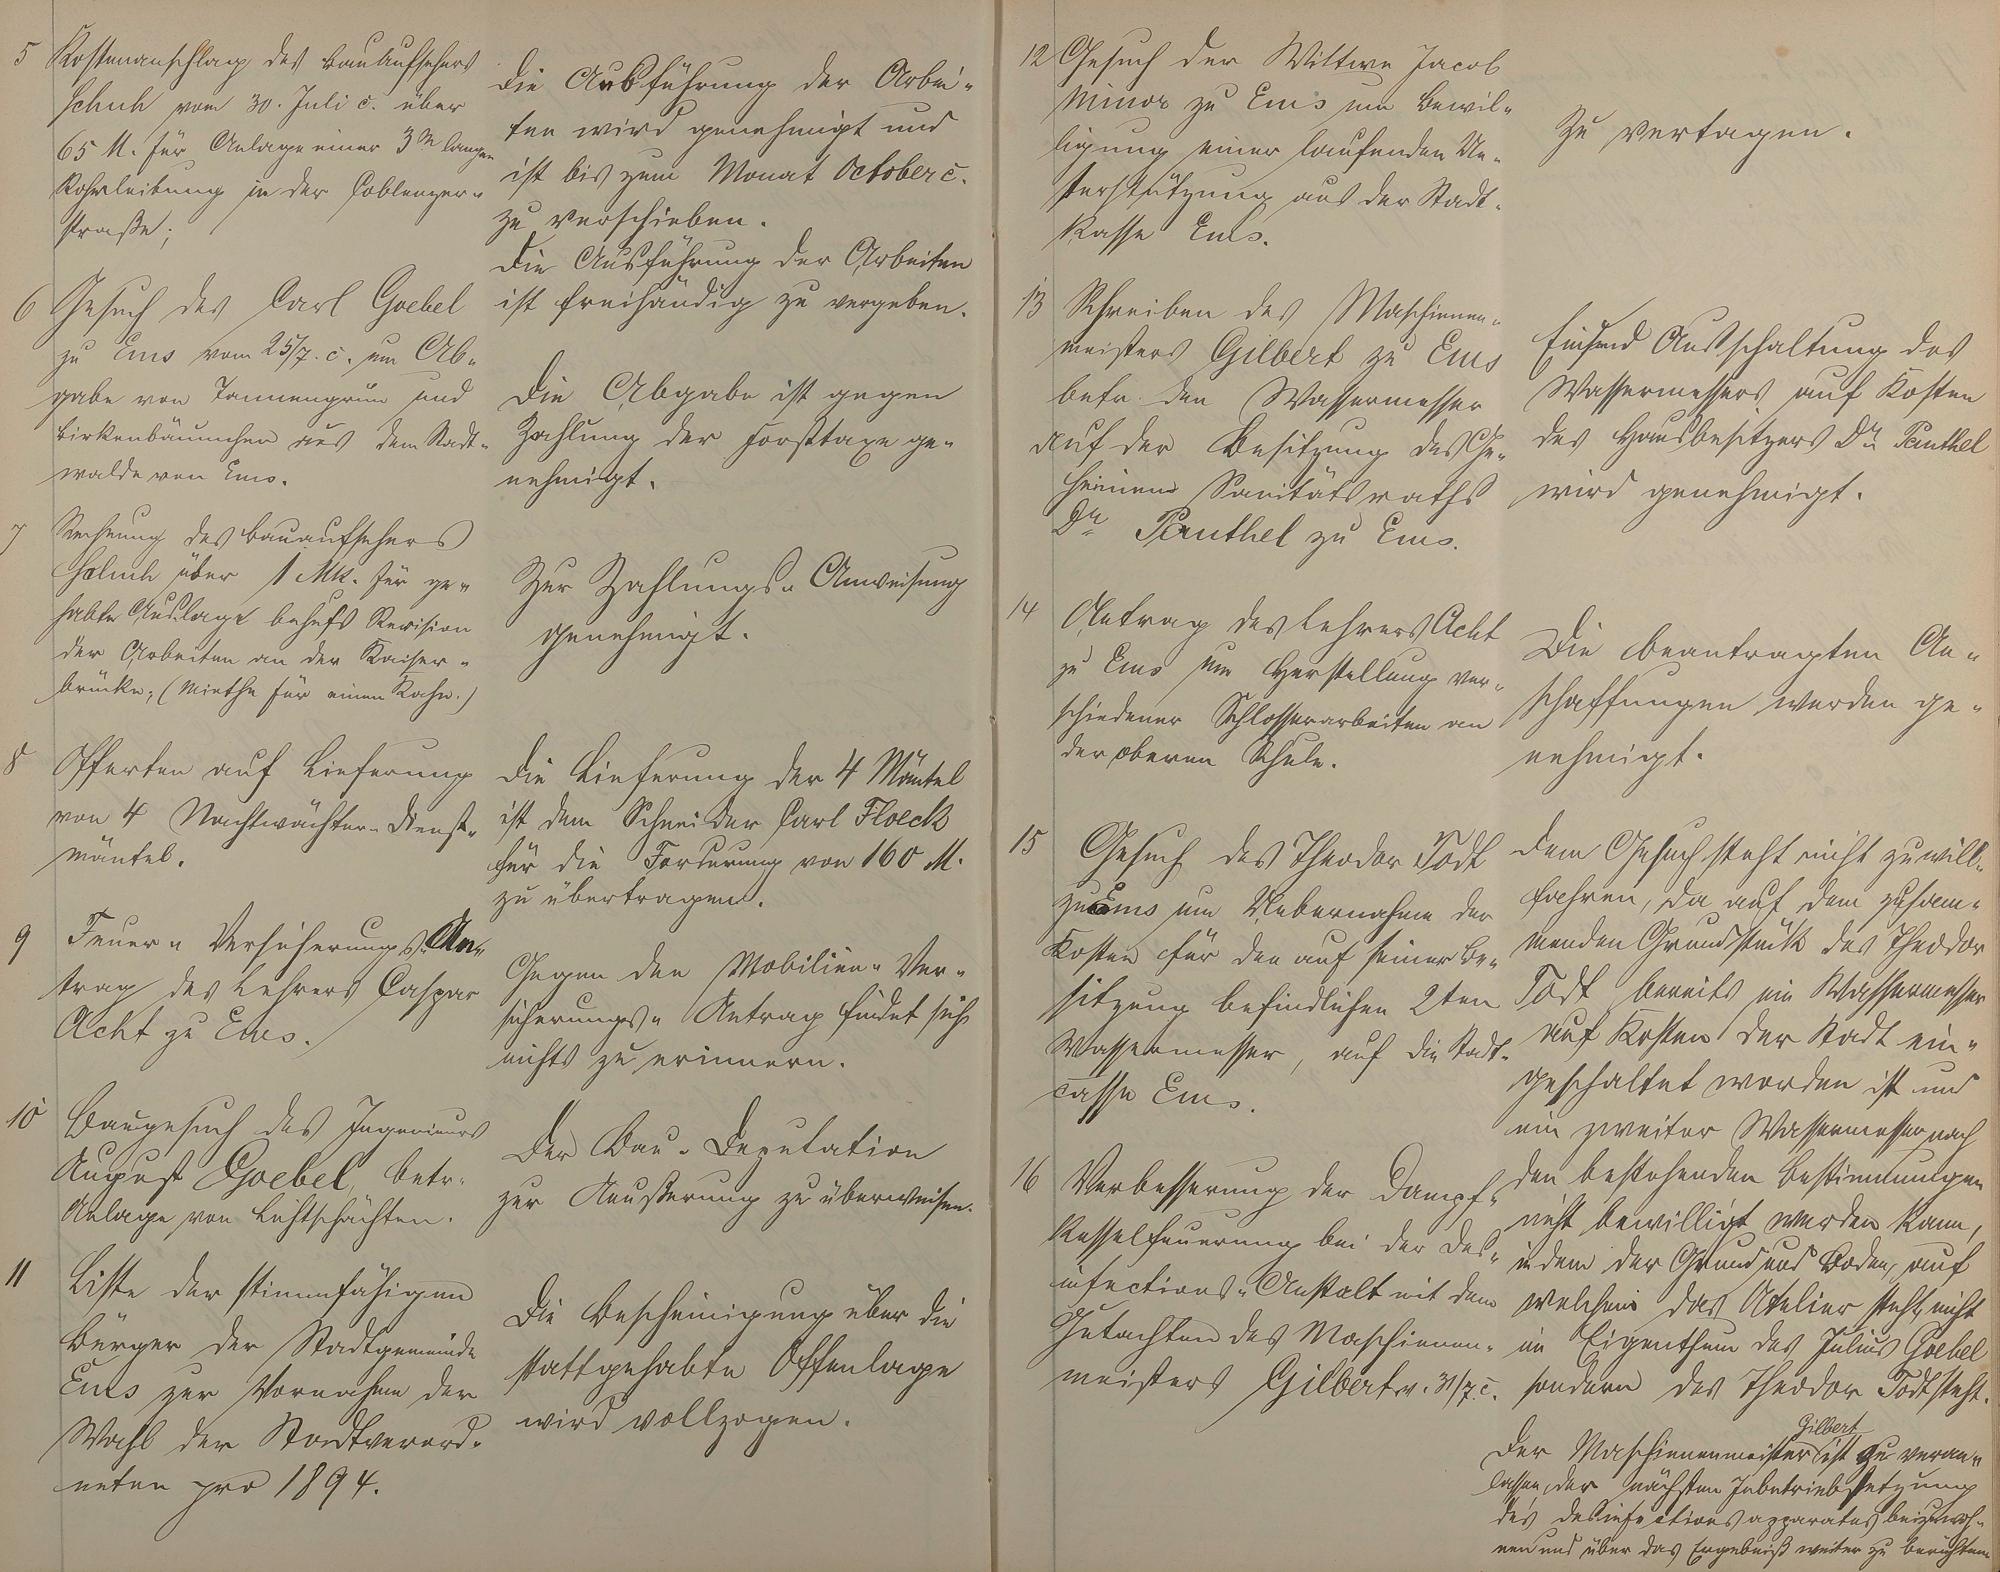 5 Kostenanschlag des Bauaufsehers
Schuh vom 30. Juli c. über
65 M. für Anlage einer 3 m langen
Rohrleitung in der Coblenzer-
straße;
Die Ausführung der Arbei-
ten wird genehmigt und
ist bis zum Monat October c.
zu verschieben.
Die Ausführung der Arbeiten
ist freihändig zu vergeben.
6 Gesuch des Carl Goebel
zu Ems vom 25/7. c. um Ab-
gabe von Tannengrün und
Birkenbäumchen aus dem Stadt-
walde von Ems.
Die Abgabe ist gegen
Zahlung der Forsttaxe ge-
nehmigt.
7 Rechnung des Bauaufsehers
Schuh über 1 Mk. für ge-
habte Auslage behufs Revision
der Arbeiten an der Kaiser-
brücke; (Miethe für einen Kahn.)
Zur Zahlungs-Anweisung
genehmigt.
8 Offerten auf Lieferung
von 4 Nachtwächter-Dienst-
mäntel.
Die Lieferung der 4 Mäntel
ist dem Schneider Carl Floeck
für die Forderung von 160 M.
zu übertragen.
9 Feuer-Versicherungs-An-
trag des Lehrers Caspar
Acht zu Ems.
Gegen den Mobilien-Ver-
sicherungs-Antrag findet sich
nichts zu erinnern.
10 Baugesuch des Ingenieurs
August Goebel, betr.
Anlage von Lichtschächten.
Der Bau-Deputation
zur Aeußerung zu überweisen.
11 Liste der stimmfähigen
Bürger der Stadtgemeinde
Ems zur Vornahme der
Wahl der Stadtverord-
neten pro 1894.
Die Bescheinigung über die
stattgehabte Offenlage
wird vollzogen.
12 Gesuch der Wittwe Jacob
Minor zu Ems um Bewil-
ligung einer laufenden Un-
terstützung aus der Stadt-
Kasse Ems.
Zu vertagen.
13 Schreiben des Maschinen-
meisters Gilbert zu Ems
betr. den Wassermesser
auf der Besitzung des Ge-
heimen Sanitätsraths
Dr. Panthel zu Ems.
Ausschaltung des
Wassermessers auf Kosten
des Hausbesitzers Dr. Panthel
wird genehmigt.
14 Antrag des Lehrers Acht
zu Ems um Herstellung ver-
schiedener Schlosserarbeiten an
der oberen Schule.
Die beantragten An-
schaffungen werden ge-
nehmigt.
15 Gesuch des Theodor Todt
zu Ems um Uebernahme der
Kosten für den auf seiner Be-
sitzung befindlichen 2ten
Wassermesser, auf die Stadt-
casse Ems.
Dem Gesuch steht nicht zu will-
fahren, da auf dem zusam-
menden Grundstück des Theodor
Todt bereits ein Wassermesser
auf Kosten der Stadt ein-
geschaltet worden ist und
ein zweiter Wassermesser nach
den bestehenden Bestimmungen
nicht bewilligt werden kann,
indem der Grund und Boden, auf
welchem das Atelier steht, nicht
im Eigenthum des Julius Goebel
sondern des Theodor Todt steht.
16 Verbesserung der Dampf-
Kesselfeuerung bei der Des-
infections-Anstalt mit dem
Gutachten des Maschinen-
meisters Gilbert v. 31/7. c.
Der Maschinenmeister Gilbert ist zu veran-
lassen, der nächsten Inbetriebsetzung
des Desinfectionsapparates beizuwoh-
nen und über das Ergebniß weiter zu berichten.